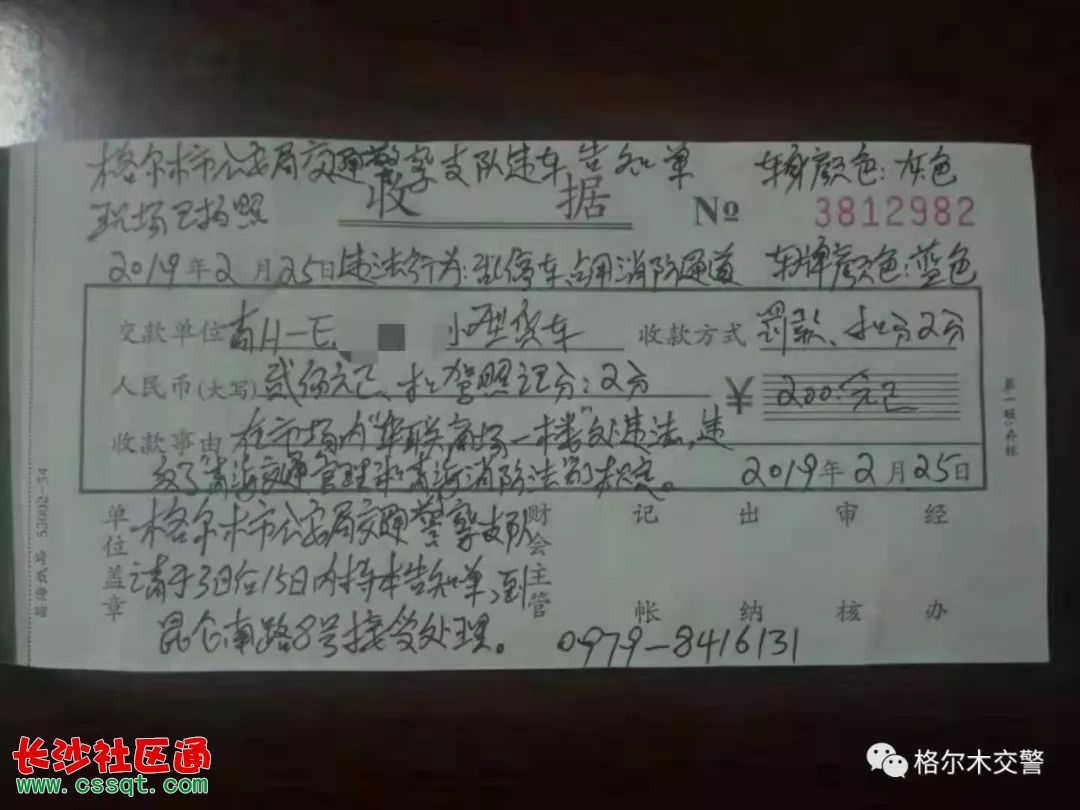 格尔木市公安局交通警察支队违车告知单 车身颜色:灰色
现场已拍照
收据 № 3812982
2019年2月25日违法行为:乱停车、占用消防通道 车牌颜色:蓝色
交款单位青H-E 小型货车 收款方式 罚款、扣分2分
人民币(大写)贰佰元已、扣驾照记分:2分 ¥200.元已
收款事由 在市场内"华联商场一楼"处违法,违
反了青海交通管理和青海消防法的规定。 2019年2月25日
第一联:存根
成文厚 53002-34
单位盖章 财会主管 记帐 出纳 审核 经办
格尔木市公安局交通警察支队
请于3日后15日内持本告知单,到
昆仑南路8号接受处理。 0979-8416131
长沙社区通
www.cssqt.com
格尔木交警